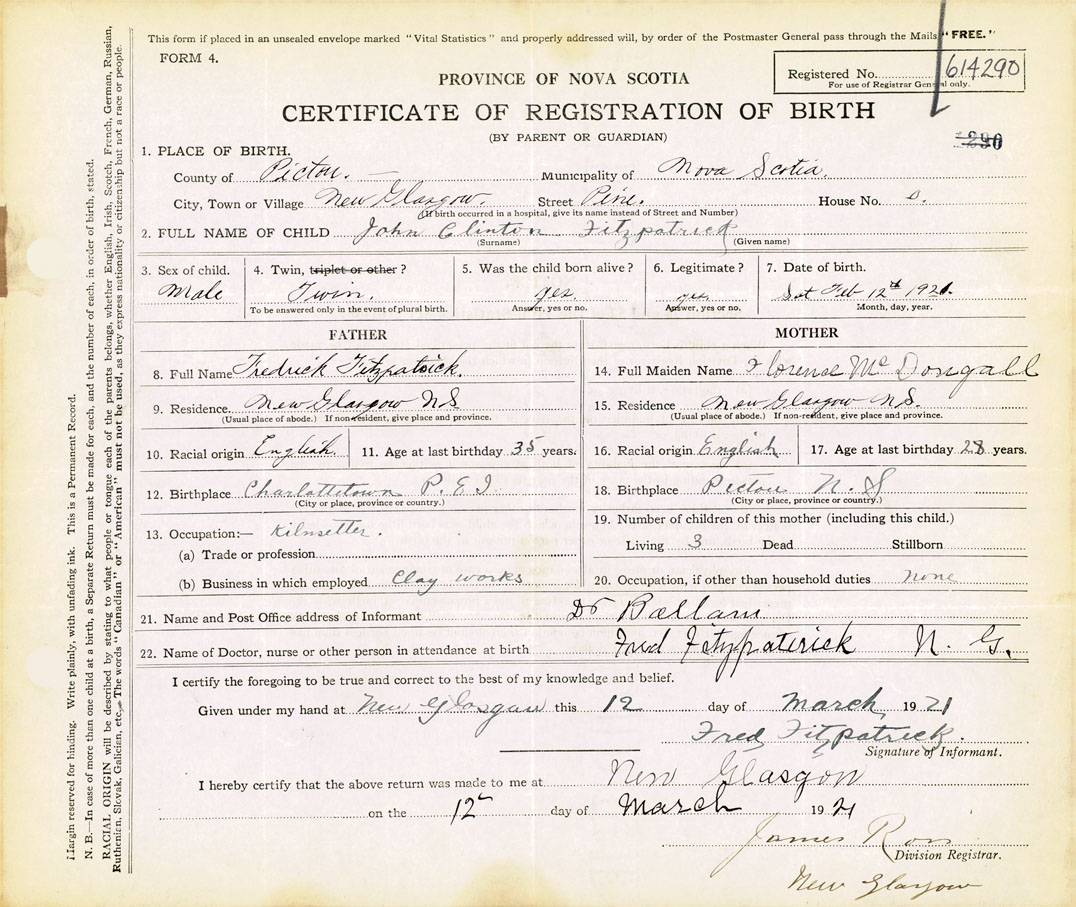 This form if placed in an unsealed envelope marked "Vital Statistics" and properly addressed will, by order of the Postmaster General pass through the Mails "FREE."
FORM 4.
PROVINCE OF NOVA SCOTIA
Registered No. 614290
For use of Registrar General only.
CERTIFICATE OF REGISTRATION OF BIRTH
(BY PARENT OR GUARDIAN)
290
1. PLACE OF BIRTH.
County of Pictou. Municipality of Nova Scotia.
City, Town or Village New Glasgow. Street Pine. House No.
(If birth occurred in a hospital, give its name instead of Street and Number)
2. FULL NAME OF CHILD John Clinton Fitzpatrick
(Surname) (Given name)
3. Sex of child. 4. Twin, triplet or other? 5. Was the child born alive? 6. Legitimate? 7. Date of birth.
Male Twin. yes. yes. Sat Feb 12th 1921.
To be answered only in the event of plural birth. Answer, yes or no. Answer, yes or no. Month, day, year.
FATHER MOTHER
8. Full Name Fredrick Fitzpatrick. 14. Full Maiden Name Florence McDougall
9. Residence New Glasgow NS 15. Residence New Glasgow NS.
(Usual place of abode.) If non-resident, give place and province. (Usual place of abode.) If non-resident, give place and province.
10. Racial origin English. 11. Age at last birthday 35 years. 16. Racial origin English 17. Age at last birthday 28 years.
12. Birthplace Charlottetown P. E I. 18. Birthplace Pictou N. S
(City or place, province or country.) (City or place, province or country.)
13. Occupation:— Kilnsetter. 19. Number of children of this mother (including this child.)
(a) Trade or profession Living 3 Dead Stillborn
(b) Business in which employed Clay works 20. Occupation, if other than household duties none
21. Name and Post Office address of Informant Dr Ballam
22. Name of Doctor, nurse or other person in attendance at birth Fred Fitzpaterick N. G.
I certify the foregoing to be true and correct to the best of my knowledge and belief.
Given under my hand at New Glasgow this 12 day of March 1921
Fred Fitpatrick.
Signature of Informant.
I hereby certify that the above return was made to me at New Glasgow
on the 12 day of March 1921
James Ross
Division Registrar.
New Glasgow
Margin reserved for binding. Write plainly, with unfading ink. This is a Permanent Record.
N. B.—In case of more than one child at a birth, a Separate Return must be made for each, and the number of each, in order of birth, stated.
RACIAL ORIGIN will be described by stating to what people or tongue each of the parents belongs, whether English, Irish, Scotch, French, German, Russian,
Ruthenian, Slovak, Galician, etc. The words "Canadian" or "American" must not be used, as they express nationality or citizenship but not a race or people.